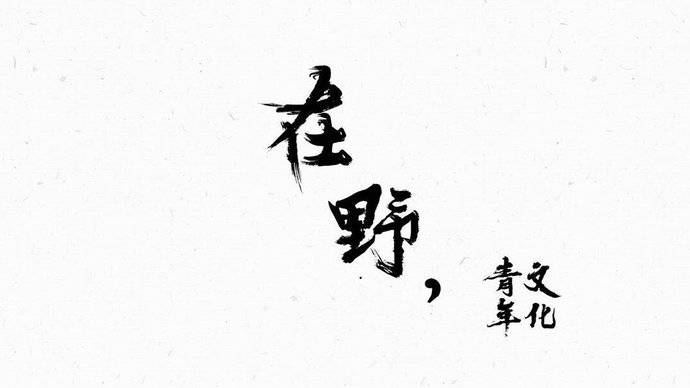 在野，
青年
文化